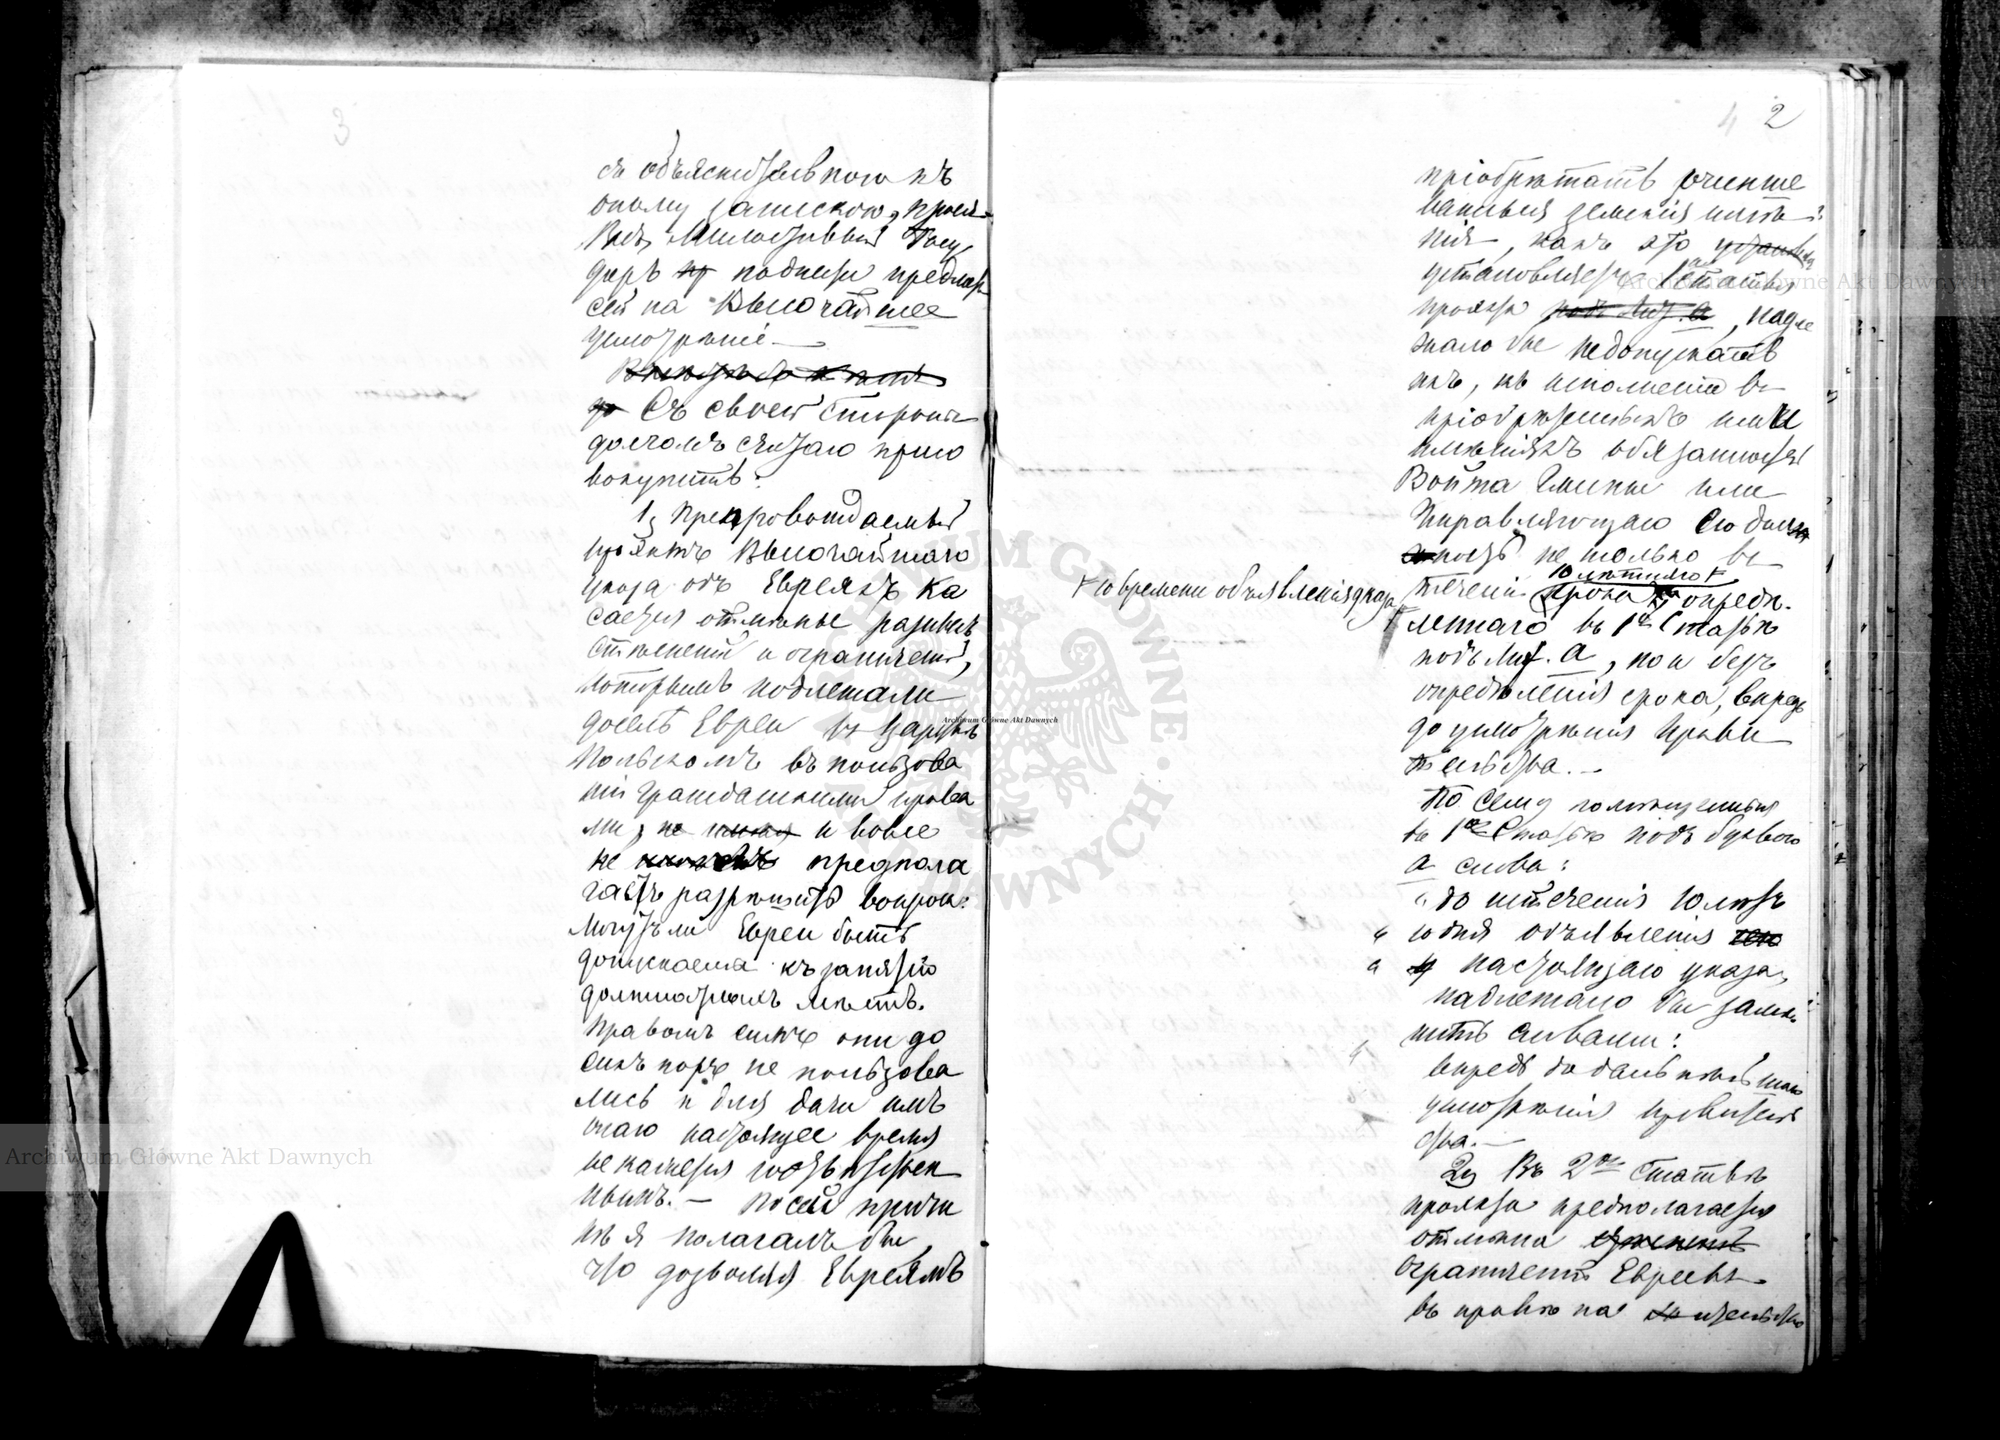 3
съ объяснительною къ
оному запискою, прося
Васъ Милостивый Госу
дарь подписи предлаг
сей на Высочайшее
усмотрѣніе.
Съ своей стороны
долгомъ считаю присо
вокупить:
1, Препровождаемый
проэктъ Высочайшаго
указа объ Евреяхъ ка
сается отмѣны разныхъ
стѣсненій и ограниченій,
которымъ подлежали
доселѣ Евреи въ Царствѣ
Польскомъ въ пользова
ніи гражданскими права
ми, не и вовсе
не предпола
гаетъ разрѣшить вопрос:
Могутъ ли Евреи быть
допускаемы къ занятію
должностныхъ мѣстъ.
Правомъ симъ они до
сихъ поръ не пользова
лись и для дачи имъ
онаго настоящее время
не кажется соотвѣтствен
нымъ. — По сей причи
нѣ я полагалъ бы,
что дозволяя Евреямъ
4 2
пріобрѣтать очинше
ванныя земскія имѣ
нія, какъ это
установляетъ 1 статья
проэкта подъ Лит. а, надле
жало бы не допускать
ихъ, къ исполненію въ
пріобрѣтенныхъ ими
имѣніяхъ обязанностей
Войта Гмины или
Управляющаго сію долж
ность не только въ
10 лѣтняго +
теченіи срока опредѣ
+ со времени объявленія указа
леннаго въ 1й Статьѣ
подъ Лит. а, но и безъ
опредѣленія срока, впредь
до усмотрѣнія Прави
тельства. —
По сему помѣщенныя
въ 1й Статьѣ подъ буквою
а слова:
„до истеченія 10 лѣтъ
„ со дня объявленія
„ настоящаго указа,
надлежало бы замѣ
нить словами:
впредь до дальнѣйшаго
усмотрѣнія правитель
ства. —
2, Въ 2й Статьѣ
проэкта предполагается
отмѣна
ограниченій Евреевъ
въ правѣ на жительство
Archiwum Główne Akt Dawnych
Archiwum Główne Akt Dawnych
Archiwum Główne Akt Dawnych
ARCHIWUM GŁÓWNE AKT DAWNYCH